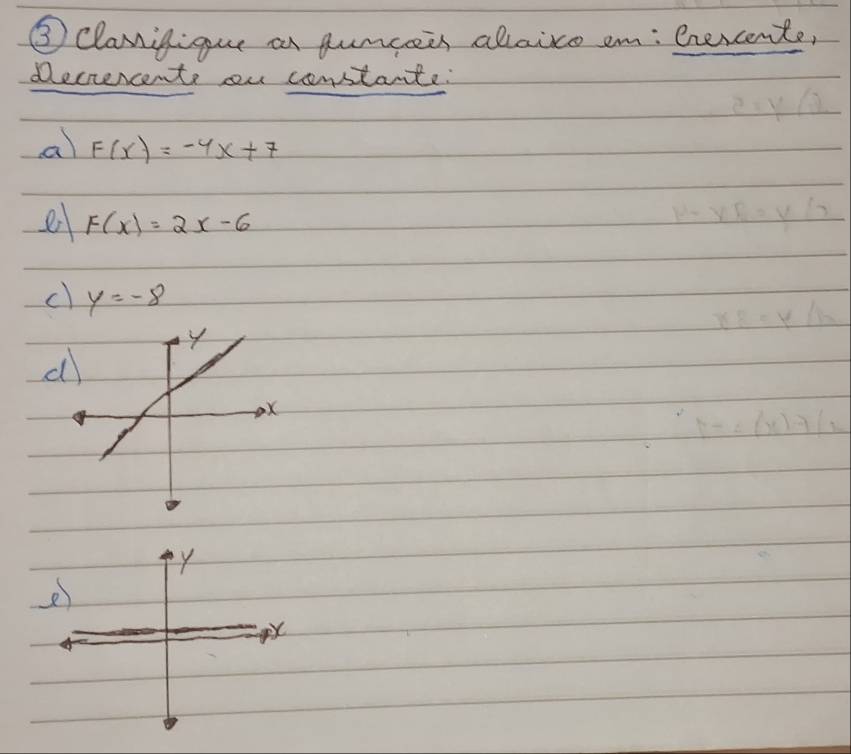 ③ Classifique as funções abaixo em: Crescente,
Decrescente ou constante:
a) F(x) = -4x + 7
b) F(x) = 2x - 6
c) y = -8
d)
y
x
e)
y
x